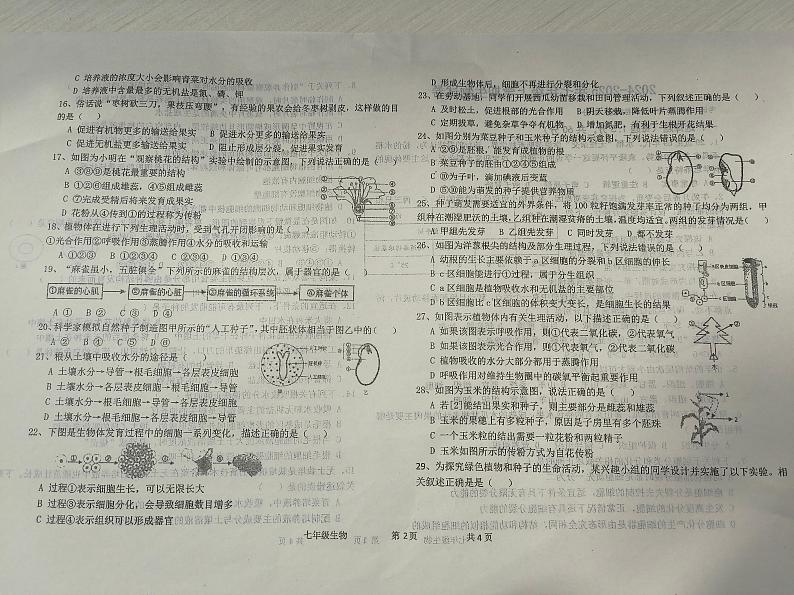 C 培养液的浓度大小会影响青菜对水分的吸收
D 培养液中含量最多的无机盐是氮、磷、钾
16、俗话说“枣树砍三刀，果枝压弯腰”，有经验的果农会给冬枣树剥皮，这样做的目
的是（ ）
A 促进有机物更多的输送给果实 B 促进水分更多的输送给果实
C 促进无机盐更多的输送给果实 D 阻止形成层分裂，促进果实发育
17、如图为小明在“观察桃花的结构”实验中绘制的示意图，下列说法正确的是（ ）
A ③⑧⑨是桃花最重要的结构
B ①②⑥组成雌蕊，④⑤组成雄蕊
C ⑦完成受精后将来发育成果实
D 花粉从④传到①的过程称为传粉
18、植物体在进行下列生理活动时，受到气孔开闭影响的是（ ）
①光合作用②呼吸作用③蒸腾作用④水分的吸收和运输
A ①②③ B ①②③④ C ②③④ D ①③④
19、“麻雀虽小，五脏俱全”下列所示的麻雀的结构层次，属于器官的是（ ）
①麻雀的心肌 ②麻雀的心脏 ③麻雀的循环系统 ④麻雀个体
A ① B ② C ③ D ④
20、科学家模拟自然种子制造图甲所示的“人工种子”，其中胚状体相当于图乙中的（ ）
A ② B ④ C ⑤ D ⑥
21、根从土壤中吸收水分的途径是（ ）
A 土壤水分→导管→根毛细胞→各层表皮细胞
B 土壤水分→各层表皮细胞→根毛细胞→导管
C 土壤水分→导管→各层表皮细胞→根毛细胞
D 土壤水分→根毛细胞→各层表皮细胞→导管
22、下图是生物体发育过程中的细胞一系列变化，描述正确的是（ ）
A 过程①表示细胞生长，可以无限长大
B 过程③表示细胞分化，会导致细胞数目增多
C 过程④表示组织可以形成器官
D 形成生物体后，细胞不再进行分裂和分化
23、在劳动基地，同学们开展西瓜幼苗移栽和田间管理活动，下列叙述正确的是（ ）
A 及时松土，促进根部的光合作用 B 阴天移栽，降低叶片蒸腾作用
C 定期拔草，避免杂草争夺有机物 D 增加氮肥，有利于生根开花结果
24、如图分别为菜豆种子和玉米种子的结构示意图，下列说法错误的是（ ）
A ②⑥是胚根，能发育成植物的根
B 菜豆种子的胚由①②④⑤组成
C ⑩为子叶，滴加碘液后变蓝
D ⑤⑩能为萌发的种子提供营养物质
25、种子萌发需要适宜的外界条件，将 100 粒籽粒饱满发芽率正常的种子均分为两组，甲
组种在潮湿肥沃的土壤，乙组种在潮湿贫瘠的土壤，温度均适宜。两组的发芽情况是（ ）
A 甲组先发芽 B 乙组先发芽 C 同时发芽 D 都不发芽
26、如图为洋葱根尖的结构及部分生理过程，下列说法错误的是（ ）
A 幼根的生长主要依赖于 c 区细胞的分裂和 b 区细胞的伸长
B c 区细胞能进行①过程，属于分生组织
C a 区细胞是植物吸收水和无机盐的主要部位
D b 区细胞比 c 区细胞的体积变大变长，是细胞生长的结果
27、如图表示植物体内有关生理活动，以下描述正确的是（ ）
A 如果该图表示呼吸作用，则①代表二氧化碳，②代表氧气
B 如果该图表示光合作用，则①代表氧气，②代表二氧化碳
C 植物吸收的水分大部分都用于蒸腾作用
D 呼吸作用对维持生物圈中的碳氧平衡起重要作用
28、如图为玉米的结构示意图，说法正确的是（ ）
A 若[2]能结出果实和种子，则主要部分是雌蕊和雄蕊
B 玉米的果穗上有多粒种子，原因是子房里有多个胚珠
C 一个玉米粒的结出需要一粒花粉和两粒精子
D 玉米如图所示的传粉方式为自花传粉
29、为探究绿色植物和种子的生命活动，某兴趣小组的同学设计并实施了以下实验。相
关叙述正确是是（ ）
七年级生物 第 2 页 共 4 页